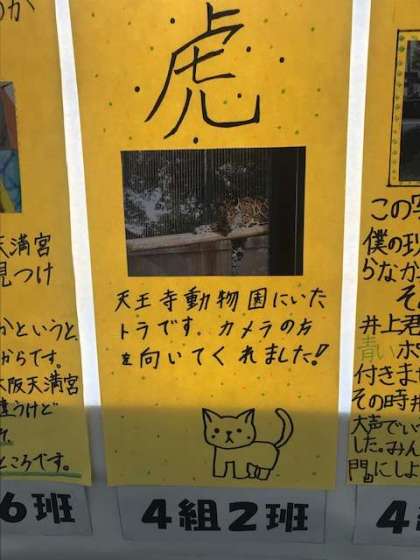 虎
天王寺動物園にいた
トラです。カメラの方
を向いてくれました!!
4組2班
天満宮
見つけ
かというと、
からです。
大阪天満宮
違うけど
ところです。
6班
この写
僕の班
らなか
そ
井上君
青いポ
付きま
その時井
大声でい
した。みん
間にしよ
4組